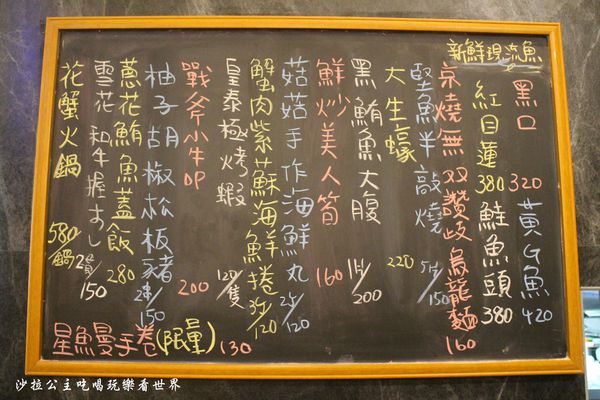 新鮮現流魚
黑口 320 黃G魚 420
紅目蓮 380 鮭魚頭 380
京燒無双讚岐烏龍麵 160
堅魚半敲燒 5片/150
大生蠔 220
黑鮪魚大腹 1片/200
鮮炒美人筒 160
菇菇手作海鮮丸 2片/120
蟹肉紫蘇海鮮捲 3片/120
皇泰極烤蝦 120/隻
戰斧小牛OP 200
柚子胡椒松板豬 2串/150
蔥花鮪魚蓋飯 280
雪花和牛握すし 2貫/150
花蟹火鍋 580/鍋
星魚曼手卷(限量) 130
沙拉公主吃喝玩樂看世界